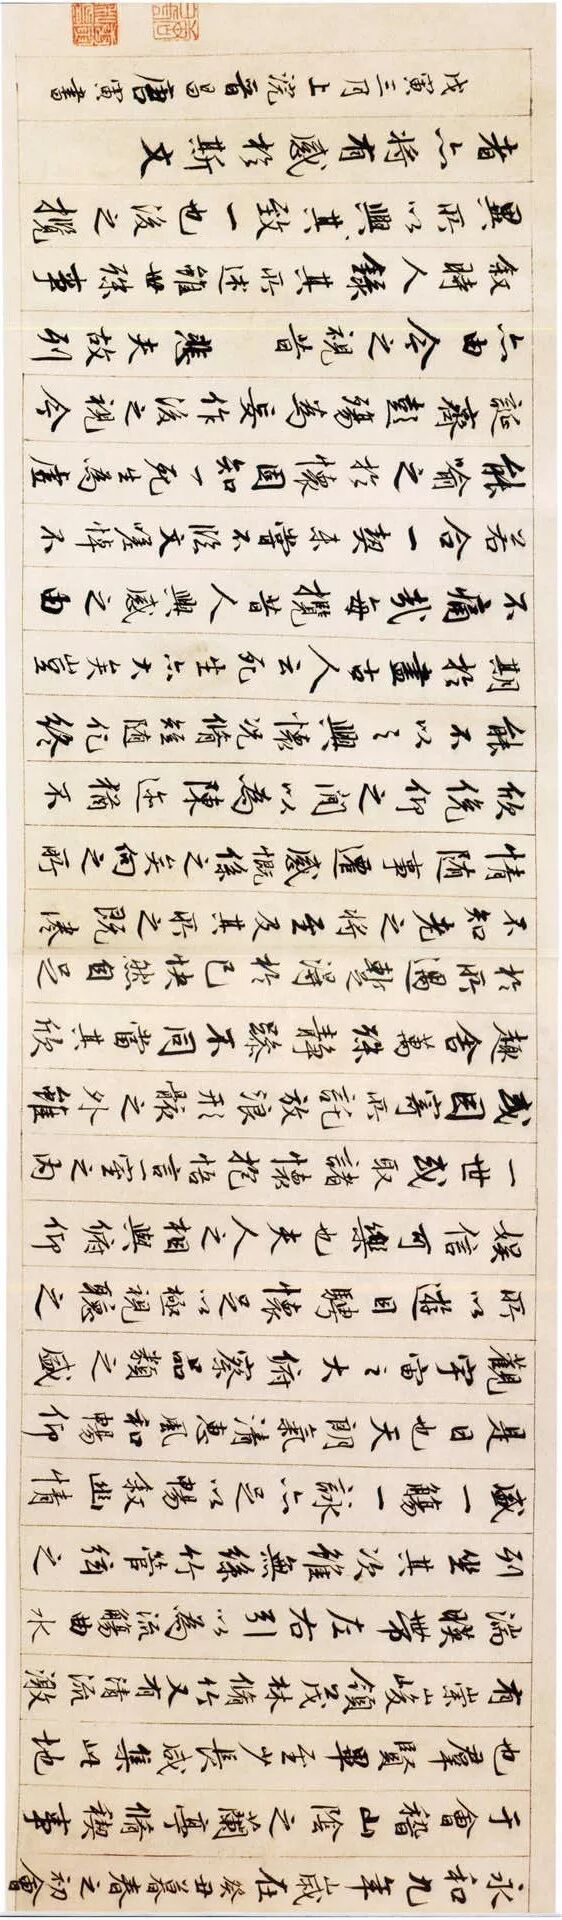 永和九年歲在癸丑暮春之初會
于會稽山陰之蘭亭脩禊事
也群賢畢至少長咸集此地
有崇山峻領茂林脩竹又有清流激
湍暎帶左右引以為流觴曲水
列坐其次雖無絲竹管弦之
盛一觴一詠亦足以暢叙幽情
是日也天朗氣清惠風和暢仰
觀宇宙之大俯察品類之盛
所以遊目騁懷足以極視聽之
娛信可樂也夫人之相與俯仰
一世或取諸懷抱悟言一室之內
或因寄所託放浪形骸之外雖
趣舍萬殊靜躁不同當其欣
於所遇蹔得於己快然自足
不知老之將至及其所之既惓
情隨事遷感慨係之矣向之所
欣俛仰之間以為陳迹猶不
能不以之興懷況脩短隨化終
期於盡古人云死生亦大矣豈
不痛哉每攬昔人興感之由
若合一契未嘗不臨文嗟悼不
能喻之於懷固知一死生為虛
誕齊彭殤為妄作後之視今
亦由今之視昔 悲夫故列
叙時人錄其所述雖世殊事
異所以興其致一也後之攬
者亦將有感於斯文
戊寅三月上浣晉昌唐寅書